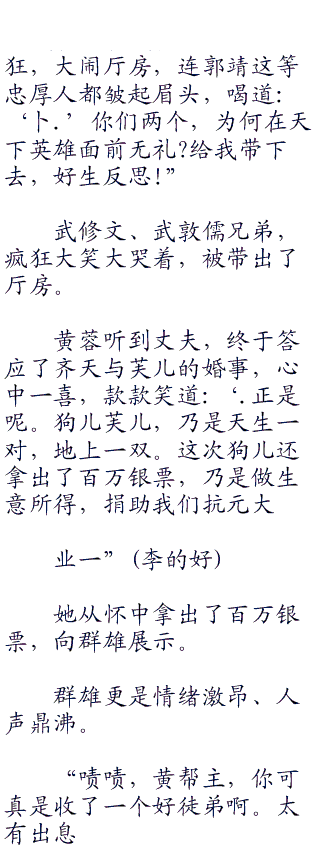 狂，大闹厅房，连郭靖这等
忠厚人都皱起眉头，喝道：
‘卜.’你们两个，为何在天
下英雄面前无礼?给我带下
去，好生反思!”
武修文、武敦儒兄弟，
疯狂大笑大哭着，被带出了
厅房。
黄蓉听到丈夫，终于答
应了齐天与芙儿的婚事，心
中一喜，款款笑道：‘.正是
呢。狗儿芙儿，乃是天生一
对，地上一双。这次狗儿还
拿出了百万银票，乃是做生
意所得，捐助我们抗元大
业一”（李的好）
她从怀中拿出了百万银
票，向群雄展示。
群雄更是情绪激昂、人
声鼎沸。
“啧啧，黄帮主，你可
真是收了一个好徒弟啊。太
有出息